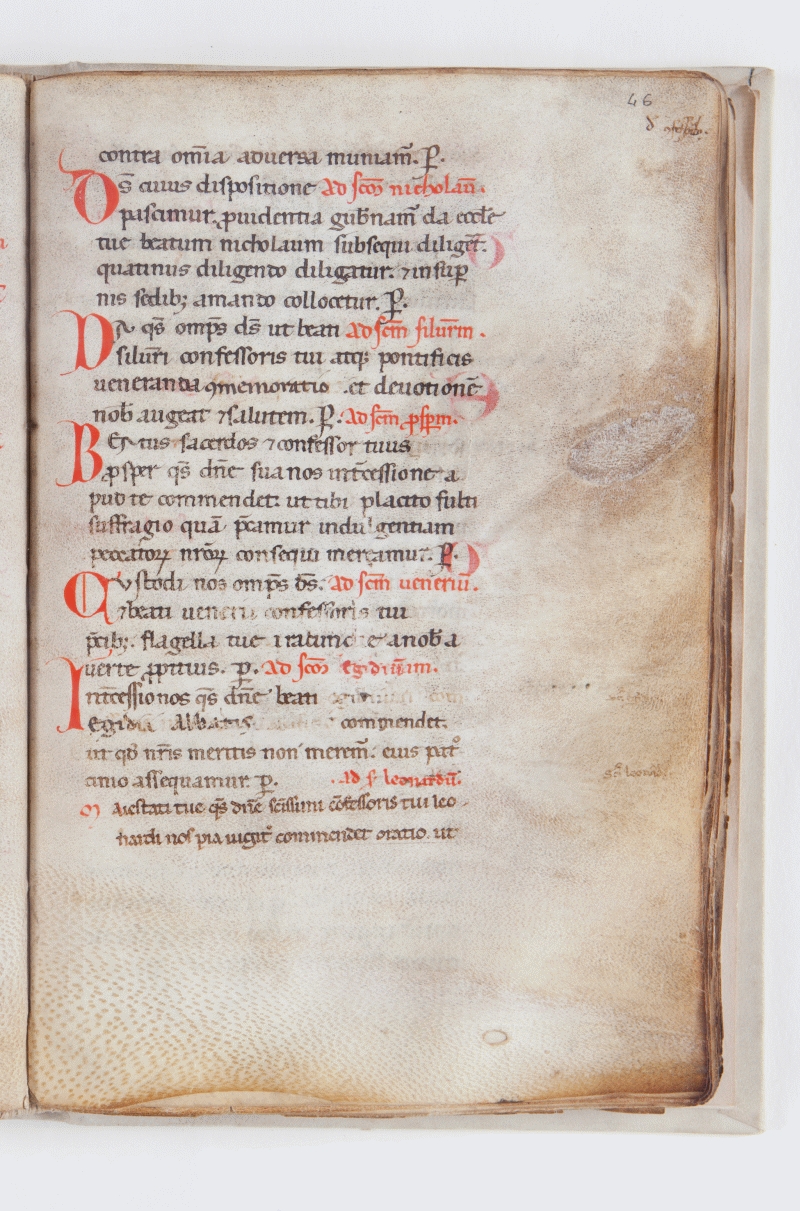 46
contra om̄ia aduersa muniam̄. P̄.
Ds̄ cuius dispositione Ad sc̄m nicholaū.
pascimur. ꝓuidentia gub̄nam̄ da eccl̄e
tue beatum nicholaum subsequi diliget̄.
quatinus diligendo diligatur. ⁊ in sup̄
nis sedib; amando collocetur. P̄.
Da qs̄ omp̄s ds̄ ut beati Ad sc̄m silur̄m.
siluri confessoris tui atq; pontificis
ueneranda ꝯmemoratio. et deuotionē
nob̄ augeat ⁊ salutem. P̄. Ad sc̄m ꝓsp̄m.
BEatus sacerdos ⁊ confessor tuus
ꝓsper qs̄ dn̄e sua nos int̄cessione a
pud te commendet. ut tibi placito fulti
suffragio quā p̄camur indulgentiam
peccatoꝝ nr̄oꝝ consequi mereamur. P̄.
Custodi nos omp̄s ds̄. Ad sc̄m ueneriū.
⁊ beati uenerii confessoris tui
p̄cib;. flagella tue iracundie a nob̄ a
uerte ꝓpitius. P̄. Ad sc̄m Egidium.
Int̄cessio nos qs̄ dn̄e beati
Egidii Abbatis commendet.
ut qd̄ nr̄is meritis non merem̄. eius pat̄o
cinio assequamur. P̄. Ad s̄. leonardū.
Maiestati tue qs̄ dn̄e sc̄issimi cōfessoris tui leo
nardi nos pia iugit̄ commendet oratio. ut